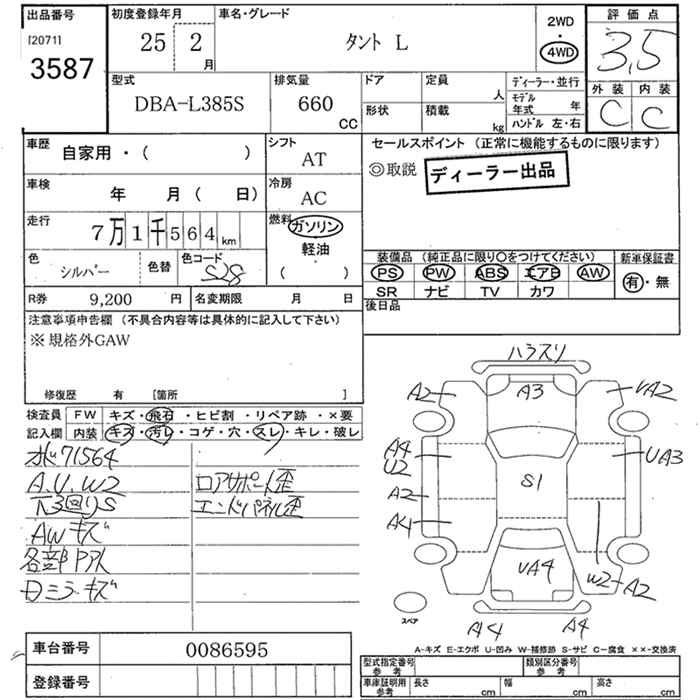 出品番号 初度登録年月 車名・グレード 2WD 評価点
[2071]
3587 25 2月 タント L ・ 4WD 3,5
型式 排気量 ドア 定員 人 ディーラー・並行 外装 内装
DBA-L385S 660 CC 形状 積載 kg モデル年式 年 C C
ハンドル 左・右
車歴 自家用・( ) シフト AT セールスポイント (正常に機能するものに限ります)
◎取説 ディーラー出品
車検 年 月 ( 日) 冷房 AC
走行 7万1千564km 燃料 ガソリン
軽油
( )
色 シルバー 色替 色コード S28 装備品 (純正品に限り○をつけてください) 新車保証書
PS PW ABS エアB AW 有・無
R券 9,200 円 名変期限 月 日 SR ナビ TV カワ
注意事項申告欄 (不具合内容等は具体的に記入して下さい) 後日品
※規格外GAW
修復歴 有 [箇所 ]
検査員 FW キズ・飛石・ヒビ割・リペア跡・×要
記入欄 内装 キズ・汚レ・コゲ・穴・スレ・キレ・破レ
71564
A.U.W2 ロアサポート歪
下回りS エンドパネル歪
AWキズ
各部
ミラーキズ
ハラスリ
A2 A3 UA2
A4
U2 UA3
S1
A2
A4
UA4 W2 A2
スペア A4 A4
A-キズ E-エクボ U-凹み W-補修跡 S-サビ C-腐食 ××-交換済
車台番号 0086595
登録番号
型式指定番号参考 類別区分番号参考
車庫証明用参考 長さ cm 幅 cm 高さ cm